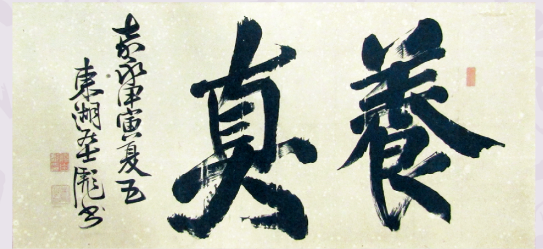 養真
嘉永甲寅夏五
東湖士彪書